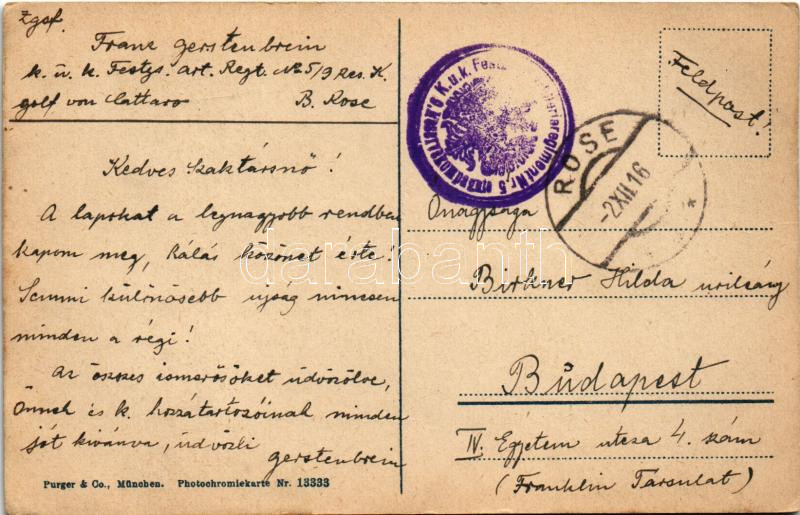 Zgsf.
Franz Gerstenbrein
k. u. k. Festgs. art. Regt. No 5/9 Res. K.
golf von Cattaro B. Rose
Kedves Szaktársnő!
A lapokat a legnagyobb rendben
kapom meg, hálás köszönet érte!
Semmi különösebb ujság nincsen
minden a régi!
Az összes ismerősöket üdvözölve,
Önnek és k. hozzátartozóinak minden
jót kivánva, üdvözli
Gerstenbrein
Purger & Co., München. Photochromiekarte Nr. 13333
K.u.k. Fest
regiment Nr. 5
ROSE
-2 XII 16
*
Feldpost!
Önagysága
Birkner Hilda urilány
Budapest
IV. Egyetem utcza 4. szám
(Franklin Tarsulat)
darabanth